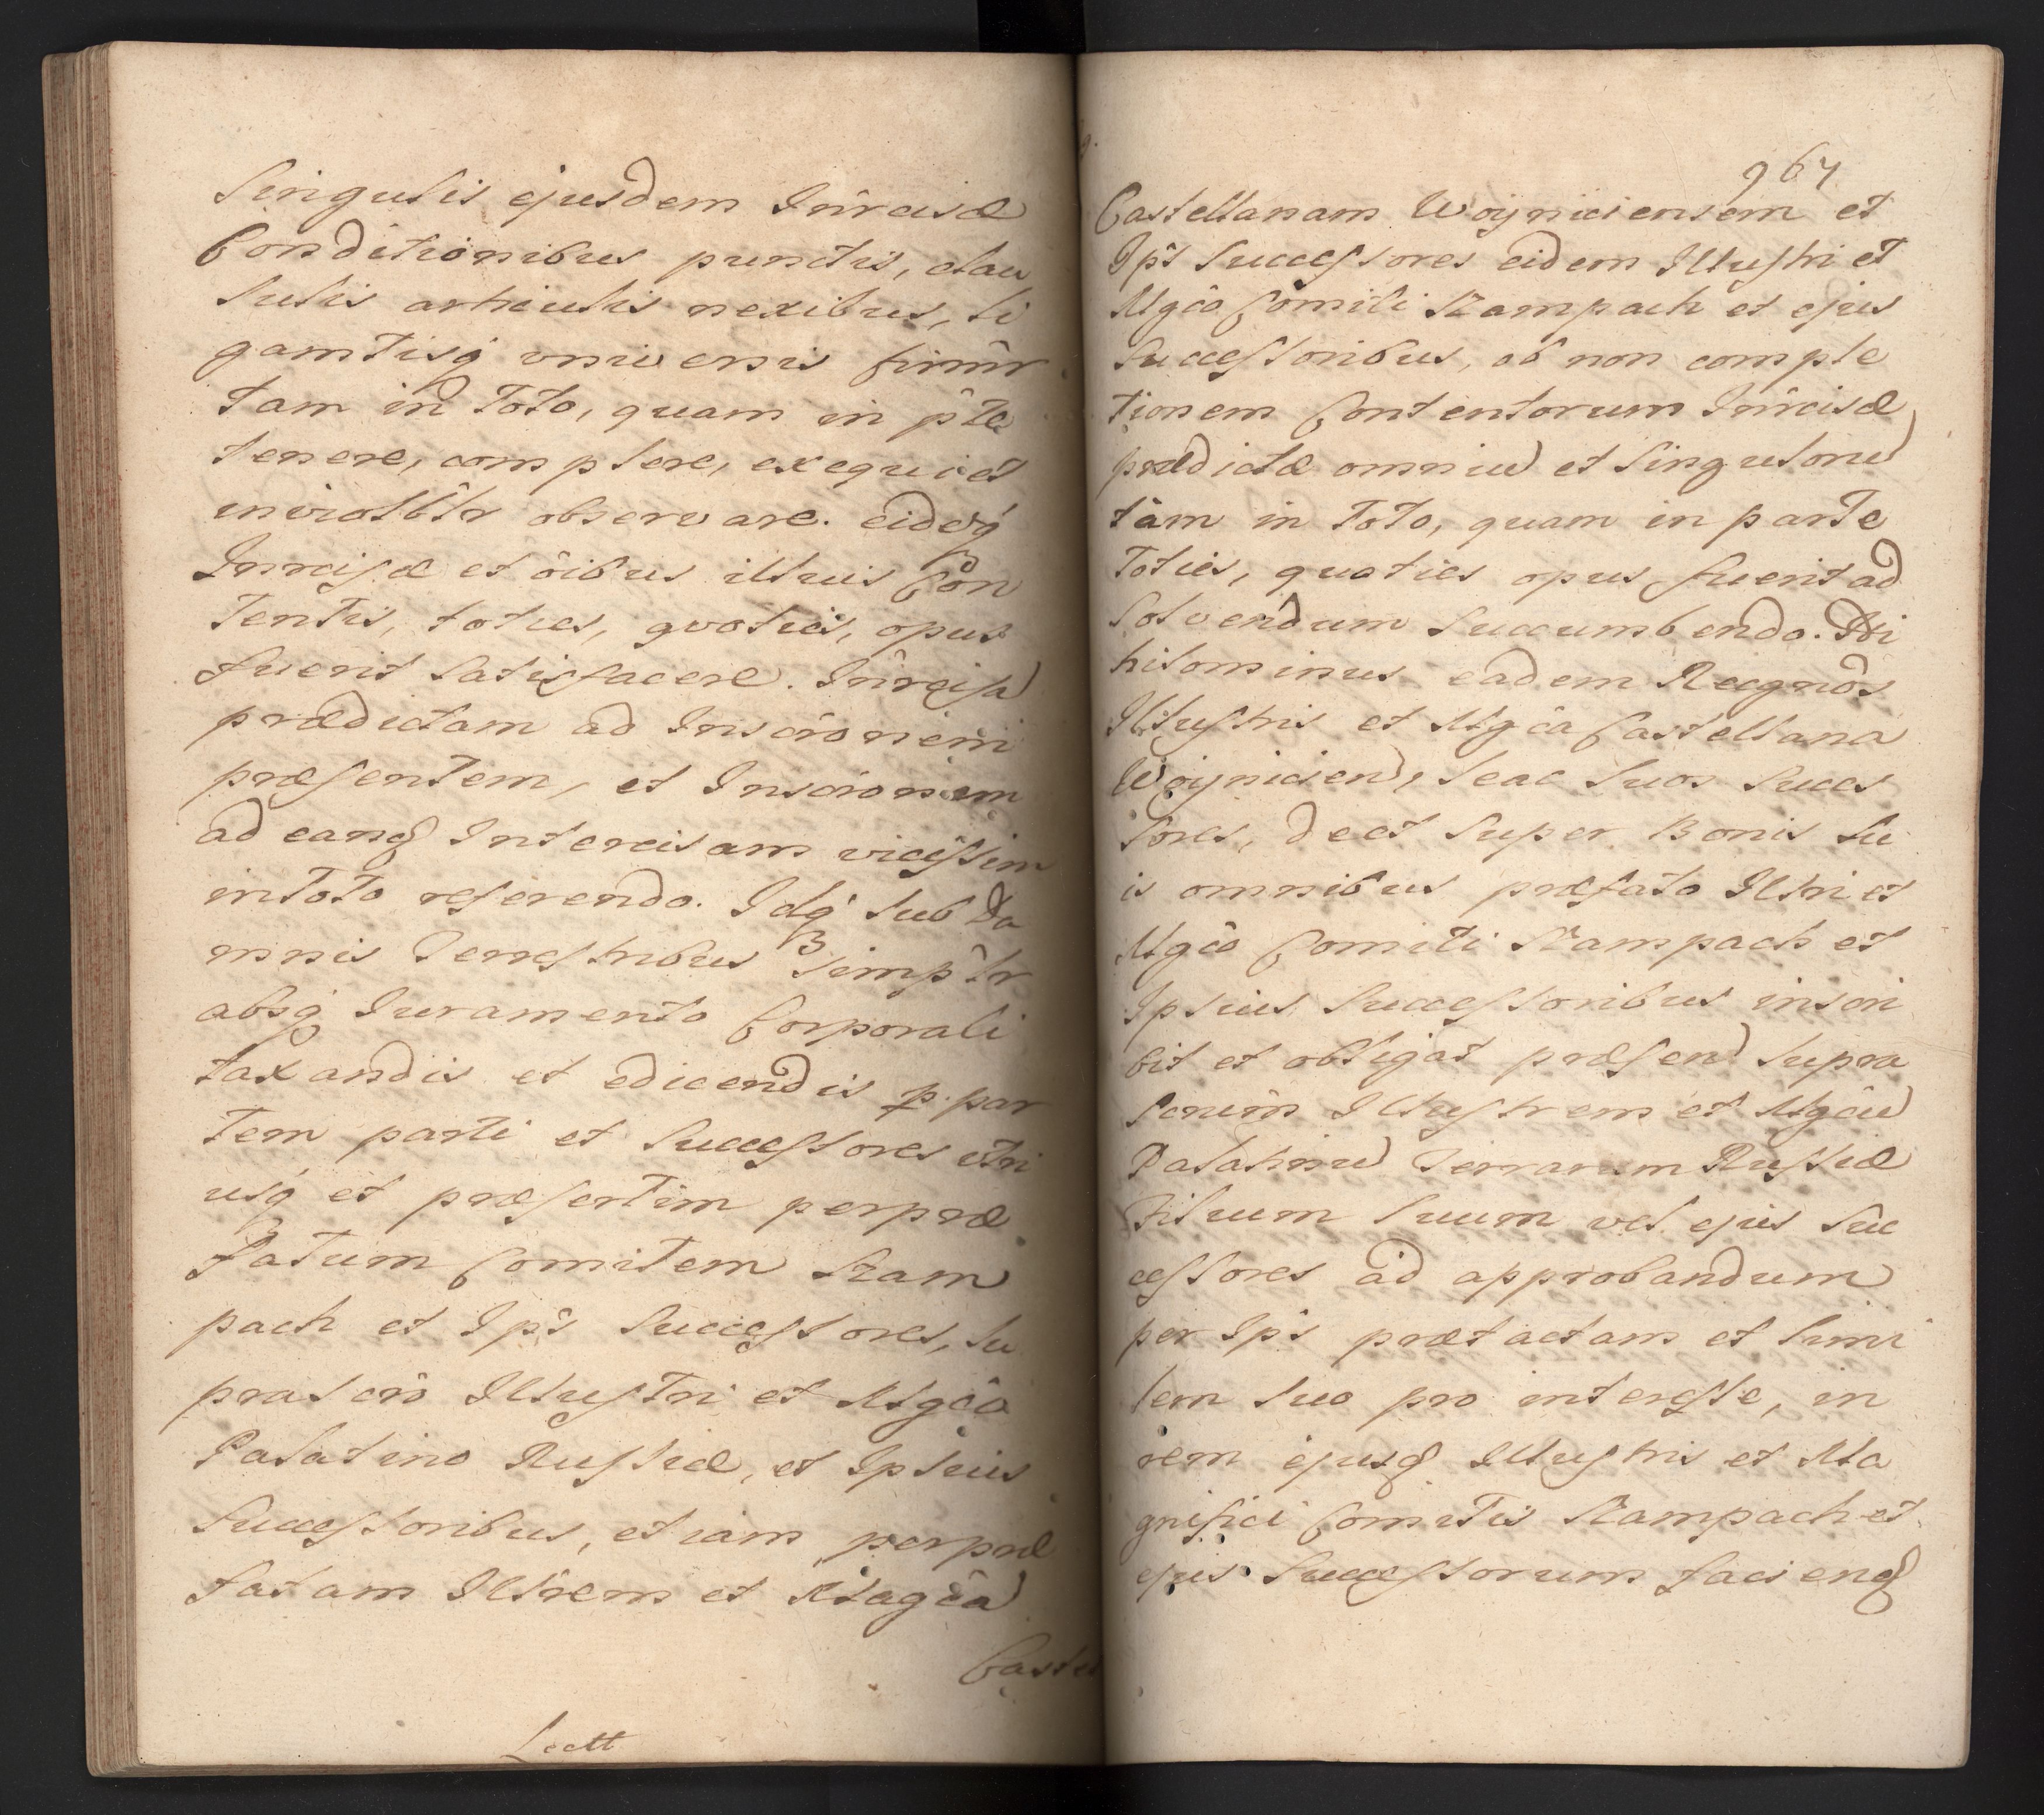 Singulis ejusdem Inrcisæ
Conditionibus punctis, clau
sulis articulis nexibus, li
gamtisq́ universis firmr
tam in Toto, quam in pte
tenere, complere, exequi et
inviolblr observare. eidq́
Inrcisæ et oibus illius Con
tentis, toties, quoties, opus
fuerit Satisfacere. Inrcisa
prædictam ad Inscrionem
præsentem, et Inscrionem
ad eand Intercisam vicissim
in Toto referendo. Idq́ sub Da
mnis Terrestribus simplr
absq́ Juramento Corporali
taxandis et edicendis p. par
tem parti et Successores utri
usq́ et præsertim per præ
fatum Comitem Szam
pach et Ips Successores, su
prascro Illustri et Mgco
Palatino Russiæ, et Ipsius
Successoribus, etiam per præ
fatam Illrem et Magca
Castel
Lectt
967
Castellanam Woyniciensem et
Ips Successores eidem Illustri et
Mgco Comiti Szampach et ejus
Successoribus, ob non comple
tionem Contentorum Inrcisæ
prædictæ omniu et Singuloru
tam in Toto, quam in parte
Toties, quoties opus fuerit ad
Solvendum Succumbendo. Ni
hilominus eadem Recgnos
Illustris et Mgca Castellana
Woynicien, seac suos Succes
sores, de et super Bonis su
is omnibus præfato Illri et
Mgco Comiti Szampach et
Ipsius Successoribus inscri
bit et obligat præsen supra
scrum Illustrem et Mgcu
Palatinu Terrarum Russiæ
Filium suum vel ejus Suc
cessores ad approbandum
per Ips prætactam et simi
lem suo pro interesse, in
rem ejusd Illustris et Ma
gnifici Comitis Szampach et
ejus Successorum faciend